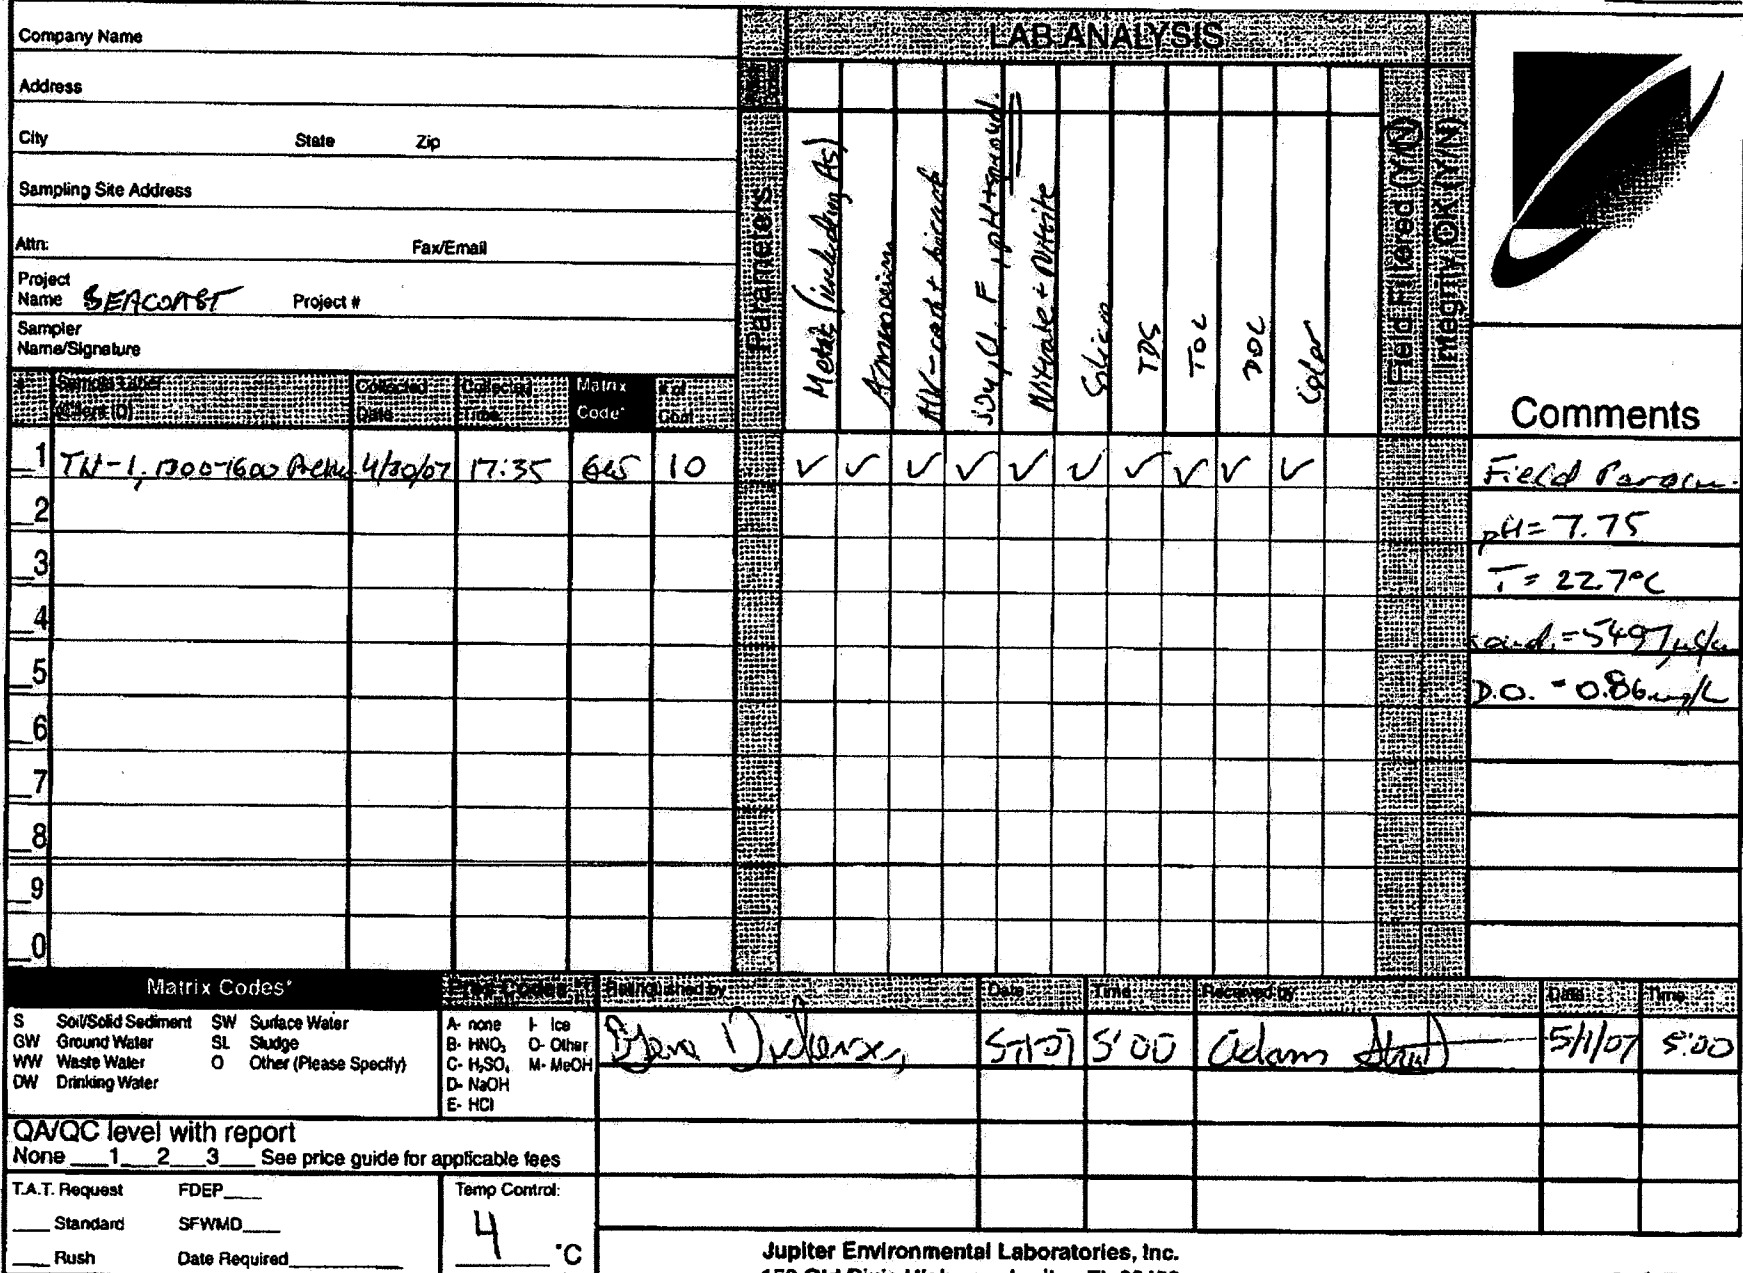 Company Name
LAB ANALYSIS
Address
City State Zip
Sampling Site Address
Attn: Fax/Email
Project
Name SEACOAST Project #
Sampler
Name/Signature
Parameters
Metals (including As)
Ammonium
Alk-carb + bicarb
SO4, Cl, F, pH +
Nitrate + Nitrite
Silica
TDS
TOC
DOC
Color
Field Filtered (Y/N)
Integrity OK (Y/N)
Comments
# Sample Label
(Client ID)
Collected
Date
Collected
Time
Matrix
Code*
# of
Cont
1 TW-1, 1300-1600 4/30/07 17:35 GW 10 ✓ ✓ ✓ ✓ ✓ ✓ ✓ ✓ ✓ ✓ Field Param.
2 pH = 7.75
3 T = 22.7°C
4 cond. = 5497 µS/cm
5 D.O. = 0.86 mg/L
6
7
8
9
0
Matrix Codes*
S Soil/Solid Sediment SW Surface Water
GW Ground Water SL Sludge
WW Waste Water O Other (Please Specify)
DW Drinking Water
Pres Codes
A- none I- Ice
B- HNO3 O- Other
C- H2SO4 M- MeOH
D- NaOH
E- HCl
Relinquished by Date Time Received by Date Time
5/1/07 5:00 Adam 5/1/07 5:00
QA/QC level with report
None ___1___2___3___ See price guide for applicable fees
T.A.T. Request FDEP____
____ Standard SFWMD____
____ Rush Date Required____________
Temp Control:
4 °C
Jupiter Environmental Laboratories, Inc.